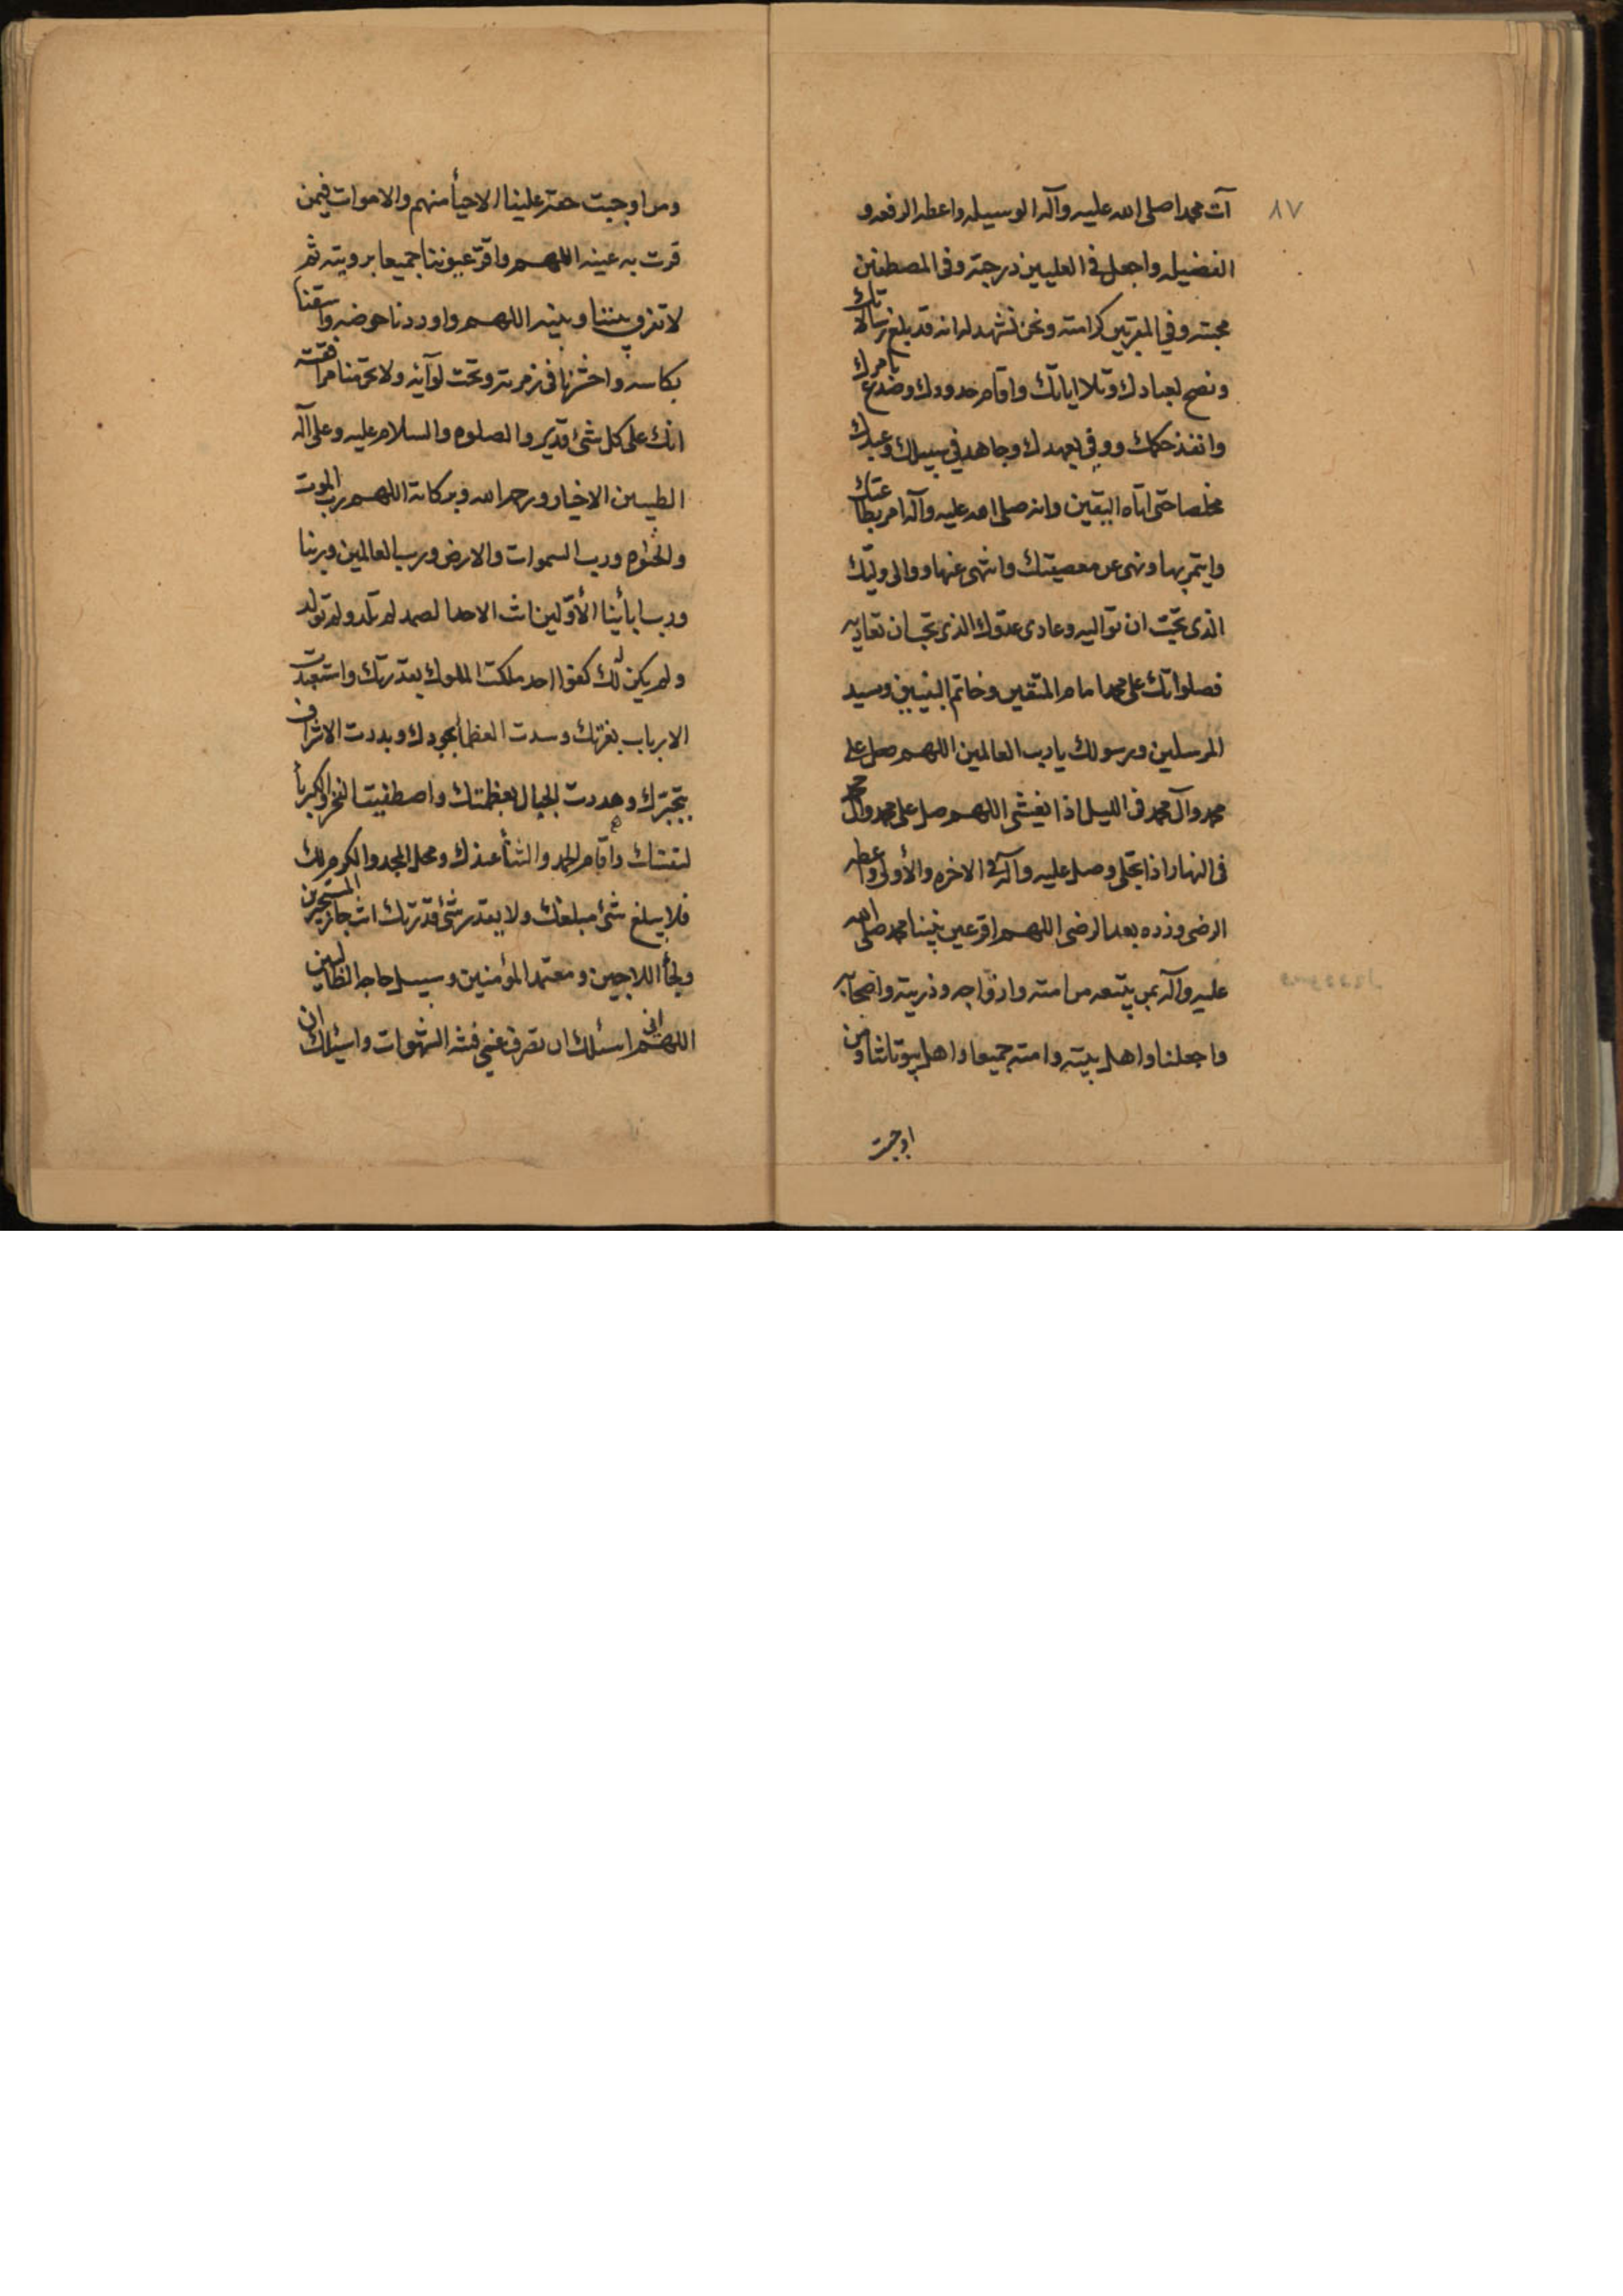 ٨٧
آت محمدا صلى الله عليه وآله الوسيله واعطه الرفعه و
الفضيله واجعل فى العليين درجته وفى المصطفين
محبته وفي المقربين كرامته ونحن نشهد له انه قد بلغ رسالاتك
ونصح لعبادك وتلا اياتك واقام حدودك وصدع بامرك
وانفذ حكمك ووفى بعهدك وجاهد في سبيلك وعبدك
مخلصا حتى اتاه اليقين وانه صلى الله عليه وآله امر بطاعتك
وايتمر بها ونهى عن معصيتك وانتهى عنها ووالى وليّك
الذى تحبّ ان تواليه وعادى عدوّك الذى تحب ان تعاديه
فصلواتك على محمد امام المتقين وخاتم النبيين وسيد
المرسلين ورسولك يا رب العالمين اللهم صل على
محمد وآل محمد فى الليل اذا يغشى اللهم صل على محمد وآل محمد
فى النهار اذا تجلى وصل عليه وآله فى الاخره والأولى واعطه
الرضى وزده بعد الرضى اللهم اقر عين نبينا محمد صلى الله
عليه وآله بمن يتبعه من امته وازواجه وذريته واصحابه
واجعلنا واهل بيته وامته جميعا واهل بيوتاتنا ومن
اوجبت
ومن اوجبت حقه علينا الاحيأ منهم والاموات فيمن
قرت به عينه اللهم واقرّ عيوننا جميعا برويته ثم
لا تفرق بيننا وبينه اللهم واوردنا حوضه واسقنا
بكاسه واحشرنا فى زمرته وتحت لوآئه ولا تحرمنا مرافقته
انك على كل شئ قدير والصلوه والسلام عليه وعلى آله
الطيبين الاخيار ورحمه الله وبركاته اللهم رب الموت
والحيوه ورب السموات والارض ورب العالمين وربنا
ورب ابأئنا الأوّلين انت الاحد الصمد لم تلد ولم تولد
ولم يكن لك كفوا احد ملكت الملوك بقدرتك واستعبدت
الارباب بعزتك وسدت العظمأ بجودك وبددت الاشراف
بتجبّرك وهددت الجبال بعظمتك واصطفيت الفخر والكبريأ
لنفسك واقام الحمد والثنأ عندك ومحل المجد والكرم لك
فلا يبلغ شئ مبلغك ولا يقدر شئ قدرتك انت جار المستجيرين
ولجأ اللاجين ومعتمد المؤمنين وسبيل حاجه الطالبين
اللهم انى اسئلك ان تصرف عنى فتنه الشهوات واسئلك ان